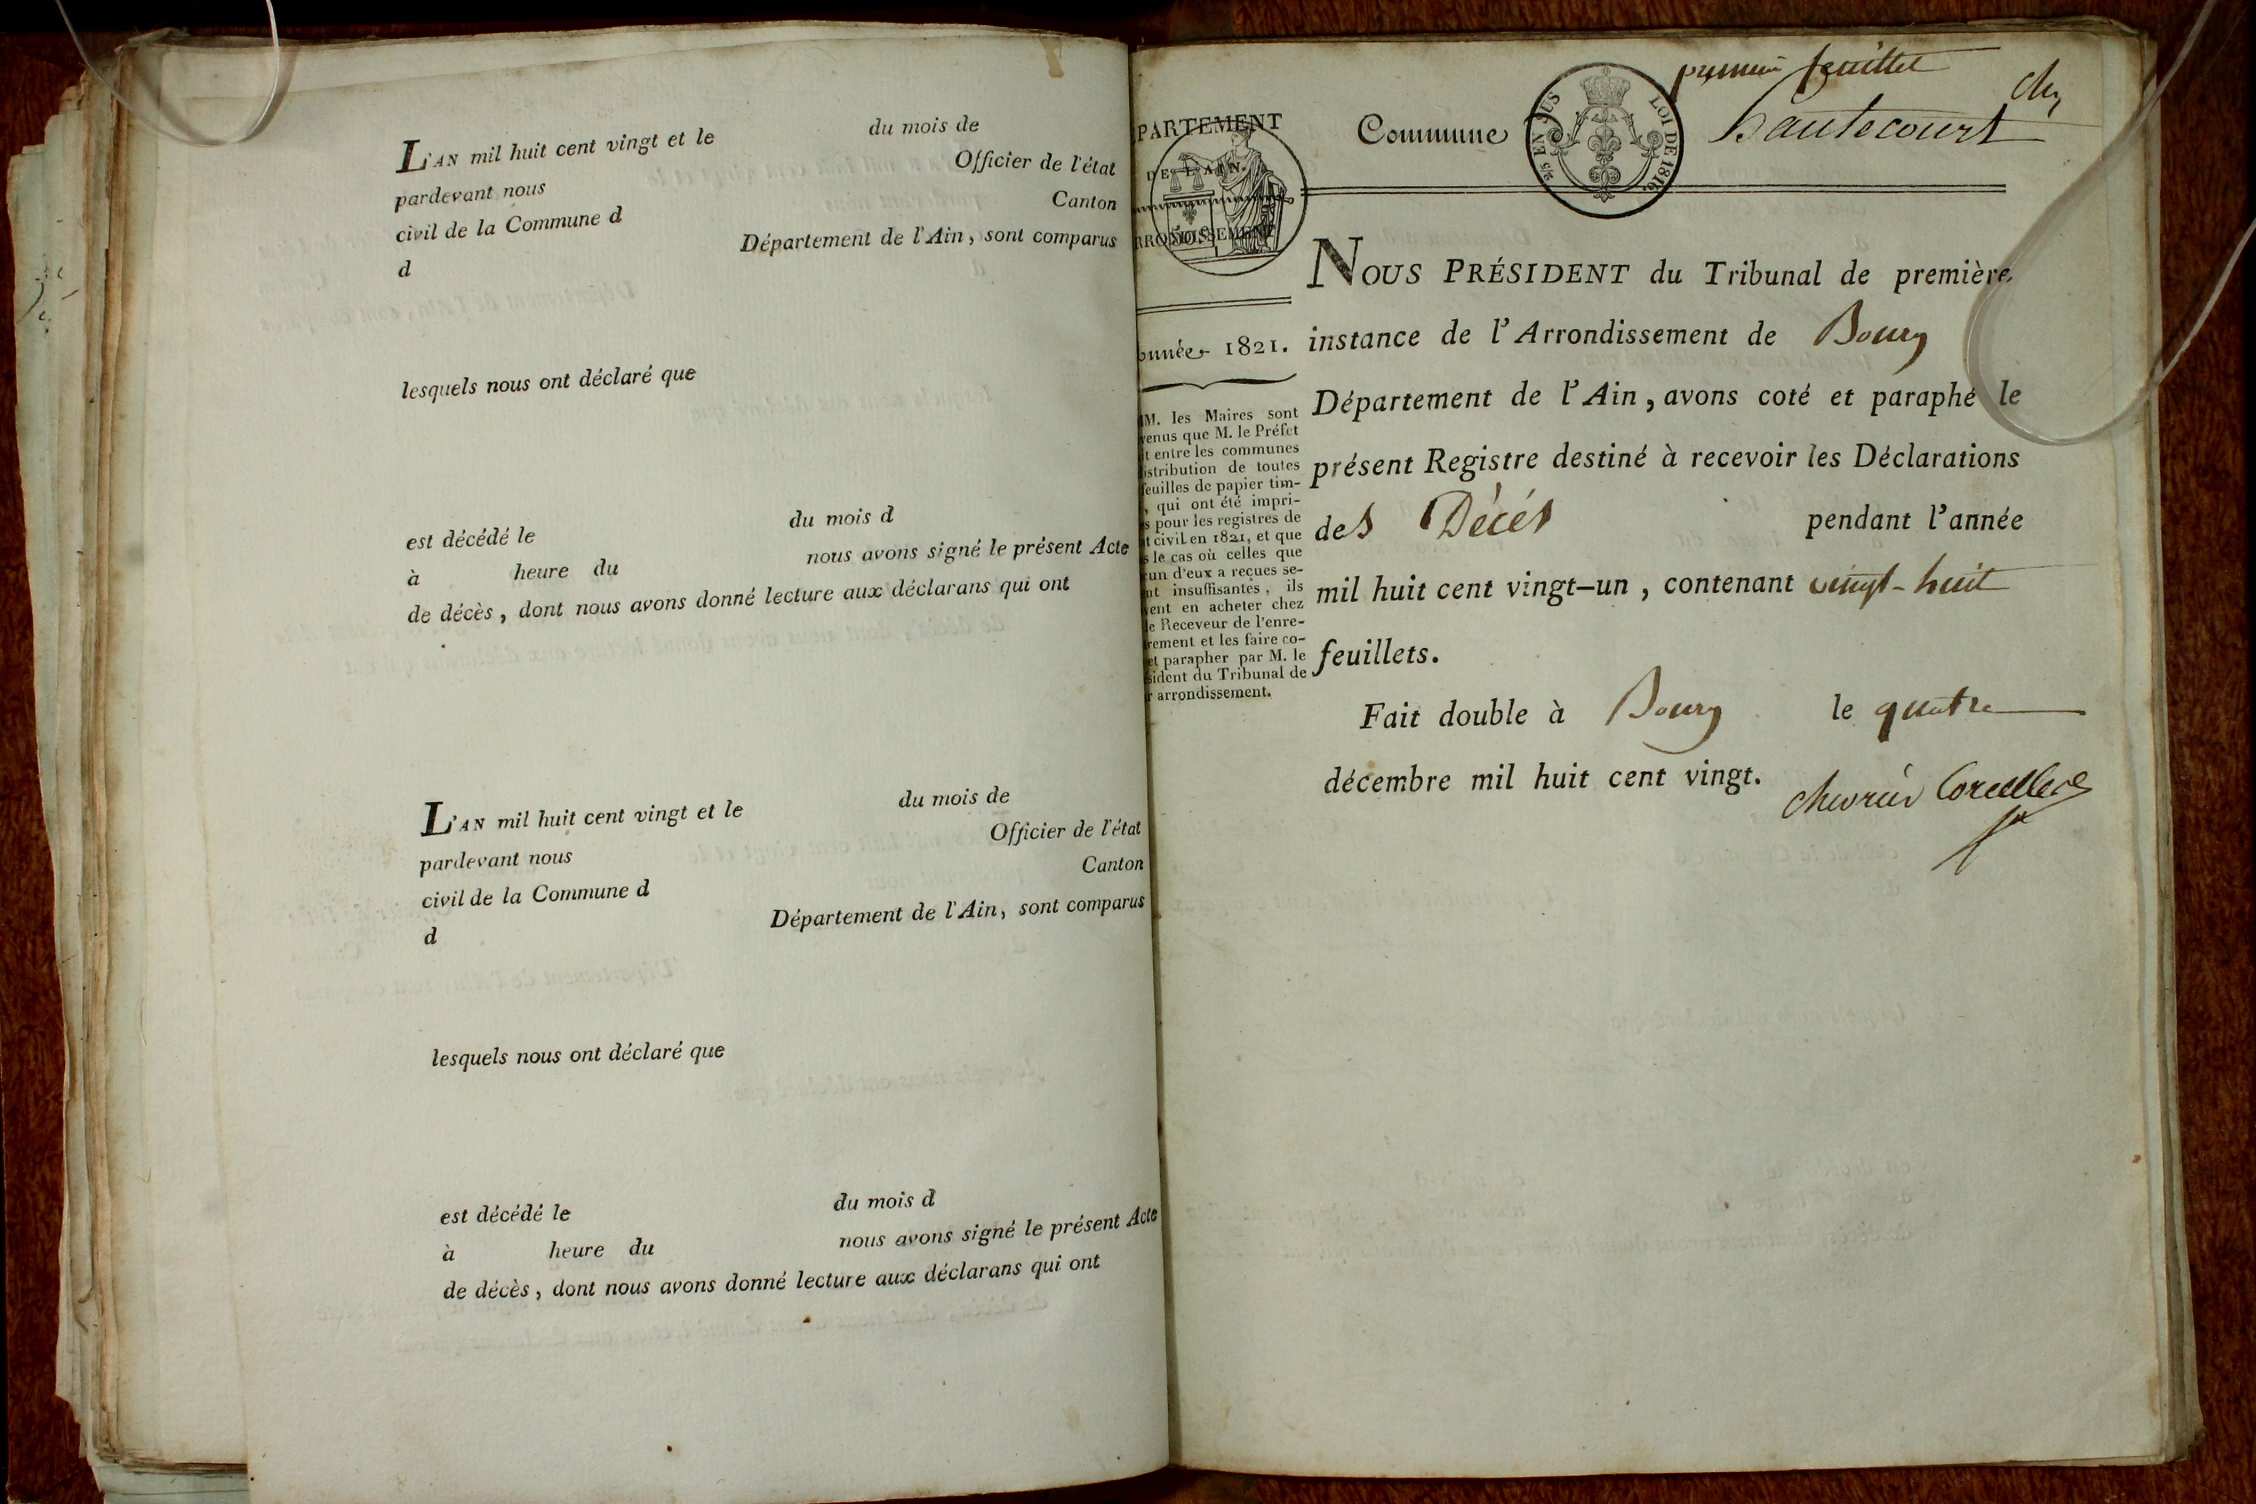 L'AN mil huit cent vingt et le du mois de
pardevant nous Officier de l'état
civil de la Commune d Canton
d Département de l'Ain, sont comparus
lesquels nous ont déclaré que
est décédé le du mois d
à heure du nous avons signé le présent Acte
de décès, dont nous avons donné lecture aux déclarans qui ont
L'AN mil huit cent vingt et le du mois de
pardevant nous Officier de l'état
civil de la Commune d Canton
d Département de l'Ain, sont comparus
lesquels nous ont déclaré que
est décédé le du mois d
à heure du nous avons signé le présent Acte
de décès, dont nous avons donné lecture aux déclarans qui ont
premier feuillet
PARTEMENT
DE L'AIN.
RRONDISSEMENT
Commune
EN SUS
LOI DE 1816.
hautecourt
nnée 1821.
M. les Maires sont
venus que M. le Préfet
t entre les communes
istribution de toutes
feuilles de papier tim-
, qui ont été impri-
s pour les registres de
t civil en 1821, et que
s le cas où celles que
cun d'eux a reçues se-
nt insuffisantes, ils
vent en acheter chez
le Receveur de l'enre-
rement et les faire co-
et parapher par M. le
sident du Tribunal de
r arrondissement.
NOUS PRÉSIDENT du Tribunal de première
instance de l'Arrondissement de Bourg
Département de l'Ain, avons coté et paraphé le
présent Registre destiné à recevoir les Déclarations
des Décés pendant l'année
mil huit cent vingt-un, contenant vingt-huit
feuillets.
Fait double à Bourg le quatre
décembre mil huit cent vingt.